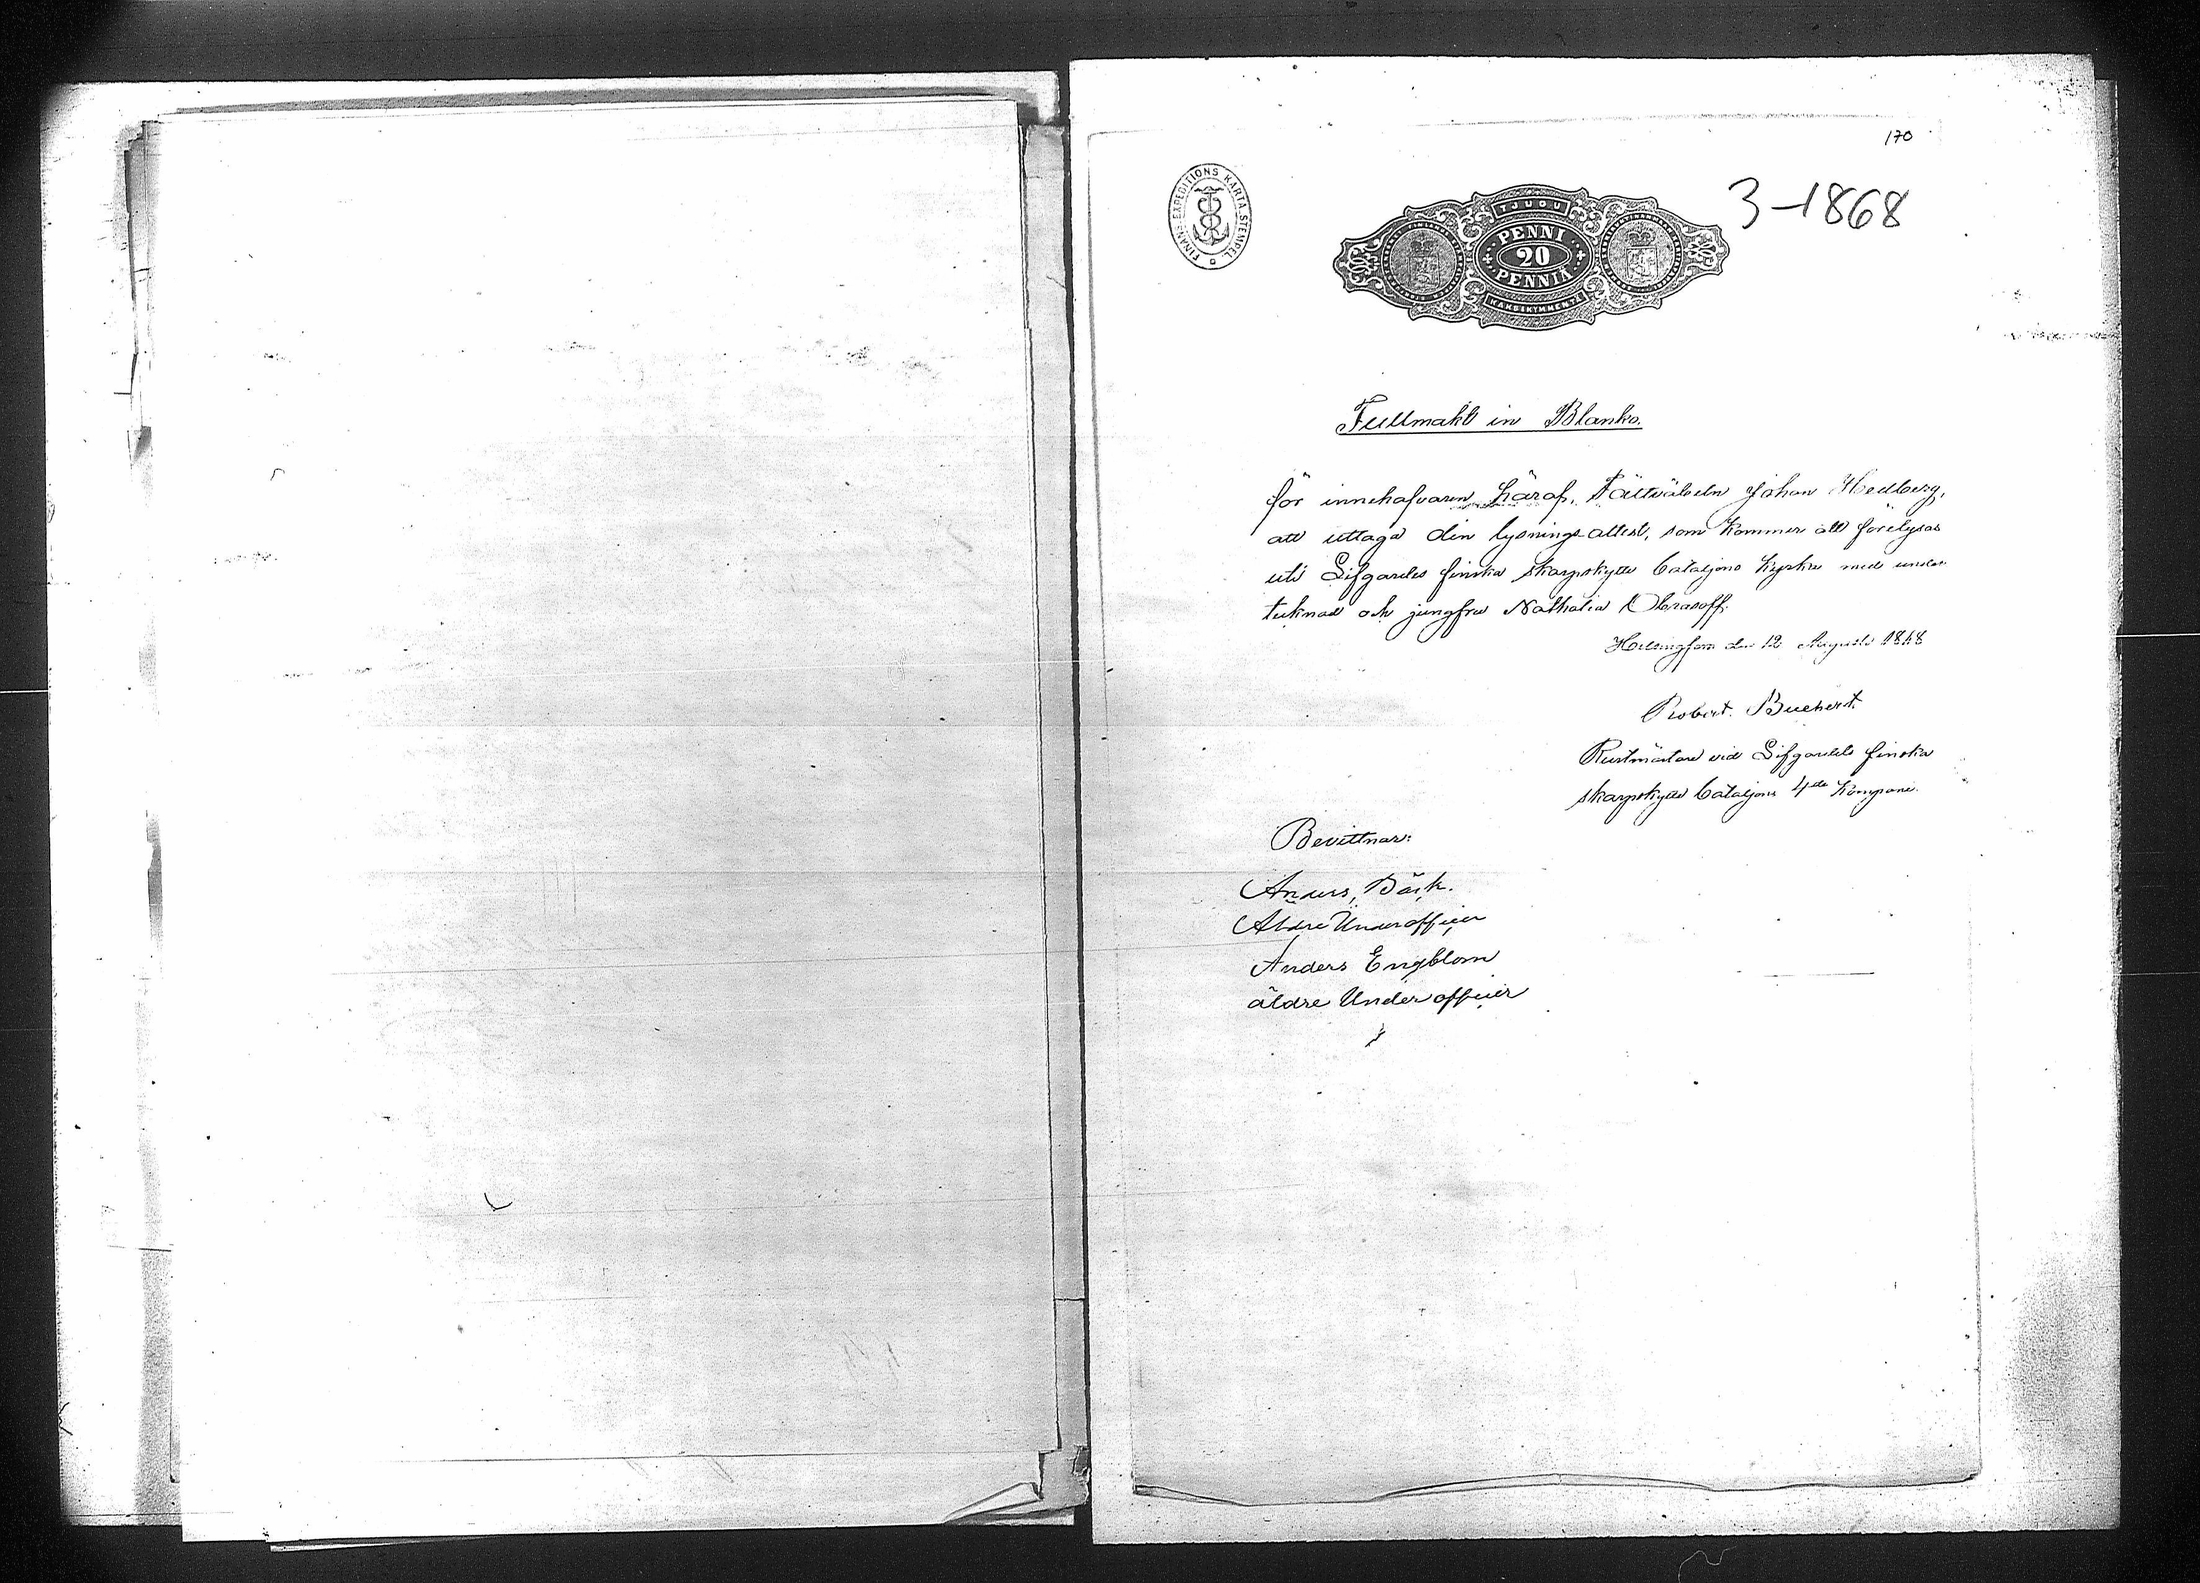 170
FINANS-EXPEDITIONS KARTA STEMPEL
3-1868
TJUGU
PENNI
20
PENNIÄ
KAKSIKYMMENTÄ
Fullmakt in Blanko.
för innehafvaren häraf, Fältväbeln Johan Hedberg,
att uttaga den lysnings attest, som kommer att förelysas
uti Lifgardets finska skarpskytte bataljons kyrka med under
tecknad och jungfru Nathalia Obrasoff.
Helsingfors den 12 Augusti 1868
Robert Buchert.
Rustmästare vid Lifgardets finska
skarpskytte bataljons 4de Kompani.
Bevittnar:
Anders Bäck.
Äldre Underofficier
Anders Engblom
äldre Under officier